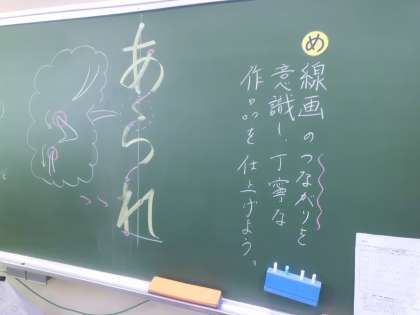 め
線画のつながりを
意識し、丁寧な
作品を仕上げよう。
あられ